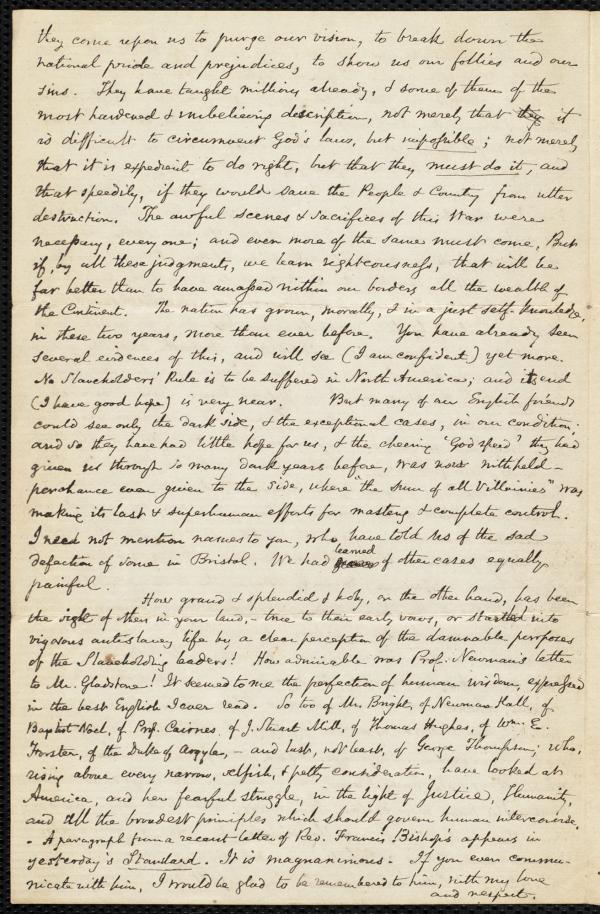 they come upon us to purge our vision, to break down the
national pride and prejudices, to show us our follies and our
sins. They have taught millions already, & some of them of the
most hardened & unbelieving description, not merely that they it
is difficult to circumvent God's laws, but impossible; not merely
that it is expedient to do right, but that they must do it, and
that speedily, if they would save the People & Country from utter
destruction. The awful scenes & sacrifices of this War were
necessary, every one; and even more of the same must come. But
if, by all these judgments, we learn righteousness, that will be
far better than to have amassed within our borders all the wealth of
the Continent. The nation has grown, morally, & in a just self-knowledge,
in these two years, more than ever before. You have already seen
several evidences of this, and will see (I am confident) yet more.
No Slaveholders' Rule is to be suffered in North America; and its end
(I have good hope) is very near. But many of our English friends
could see only the dark side, & the exceptional cases, in our condition.
and so they have had little hope for us, & the cheering 'God speed' they had
given us through so many dark years before, was now withheld -
perchance even given to the side, where "the sum of all Villainies" was
making its last & superhuman efforts for mastery & complete control.
I need not mention names to you, who have told us of the sad
defection of some in Bristol. We had learned of other cases equally
painful.
How grand & splendid & holy, on the other hand, has been
the sight of others in your land, - true to their early vows, or started into
vigorous antislavery life by a clear perception of the damnable purposes
of the Slaveholding leaders! How admirable was Prof. Newman's letter
to Mr. Gladstone! It seemed to me the perfection of human wisdom, expressed
in the best English I ever read. So too of Mr. Bright, of Newman Hall, of
Baptist Noel, of Prof. Cairnes, of J. Stuart Mill, of Thomas Hughes, of Wm. E.
Forster, of the Duke of Argyle, - and last, not least, of George Thompson; who,
rising above every narrow, selfish, & petty consideration, have looked at
America, and her fearful struggle, in the light of Justice, Humanity,
and all the broadest principles which should govern human intercourse.
- A paragraph from a recent letter of Rev. Francis Bishop's appears in
yesterday's Standard. It is magnanimous. If you ever commu-
nicate with him, I would be glad to be remembered to him, with my love
and respect.